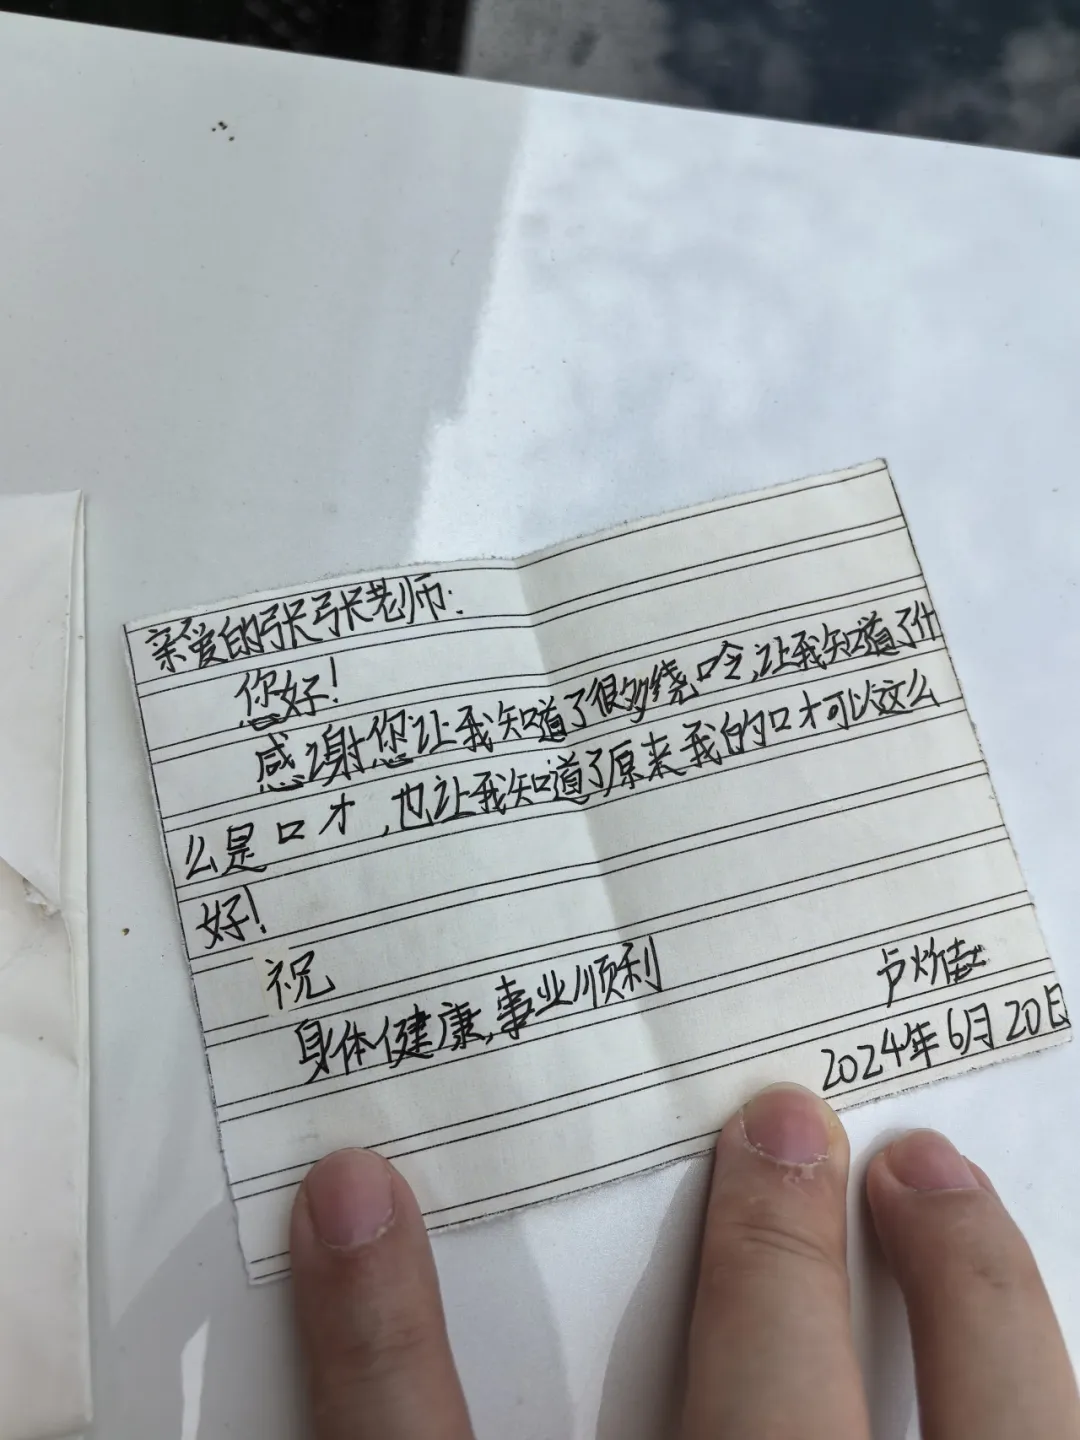 亲爱的张张老师:
您好!
感谢您让我知道了很多绕口令,让我知道了什
么是口才,也让我知道了原来我的口才可以这么
好!
祝
身体健康,事业顺利
卢
2024年6月20日